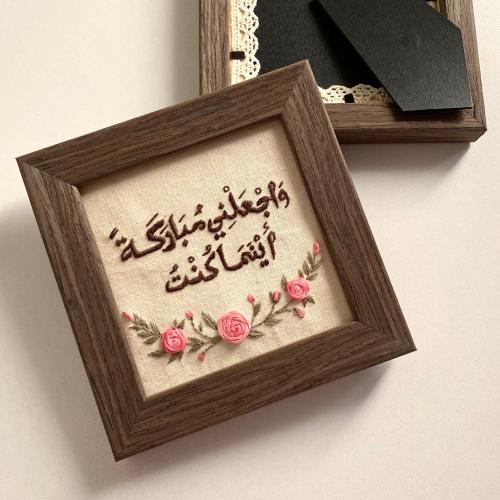 وَاجْعَلْنِي مُبَارَكَةً
أَيْنَمَا كُنْتُ